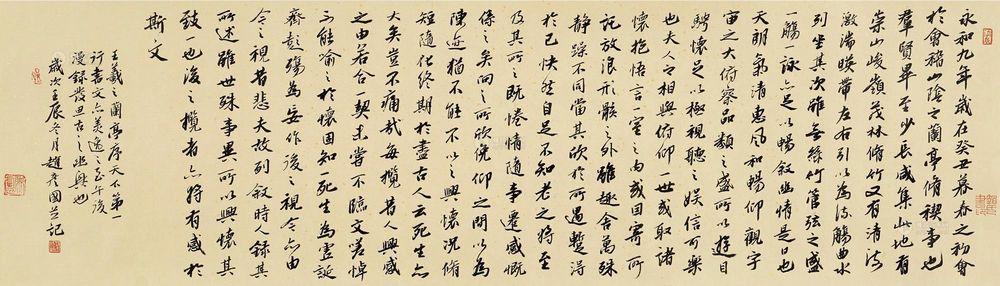 永和九年歲在癸丑暮春之初會
於會稽山陰之蘭亭脩禊事也
羣賢畢至少長咸集此地有
崇山峻嶺茂林脩竹又有清流
激湍暎帶左右引以為流觴曲水
列坐其次雖無絲竹管弦之盛
一觴一詠亦足以暢敘幽情是日也
天朗氣清惠風和暢仰觀宇
宙之大俯察品類之盛所以遊目
騁懷足以極視聽之娛信可樂
也夫人之相與俯仰一世或取諸
懷抱悟言一室之內或因寄所
託放浪形骸之外雖趣舍萬殊
靜躁不同當其欣於所遇蹔得
於己怏然自足不知老之將至
及其所之既惓情隨事遷感慨
係之矣向之所欣俛仰之間以為
陳迹猶不能不以之興懷況脩
短隨化終期於盡古人云死生亦
大矣豈不痛哉每攬昔人興感
之由若合一契未嘗不臨文嗟悼
不能喻之於懷固知一死生為虛誕
齊彭殤為妄作後之視今亦由
今之視昔悲夫故列敘時人錄其
所述雖世殊事異所以興懷其
致一也後之攬者亦將有感於
斯文
王羲之蘭亭序天下第一
行書文亦美逸之至午後
漫錄發思古之幽興也
歲次壬辰冬月趙彦國並記